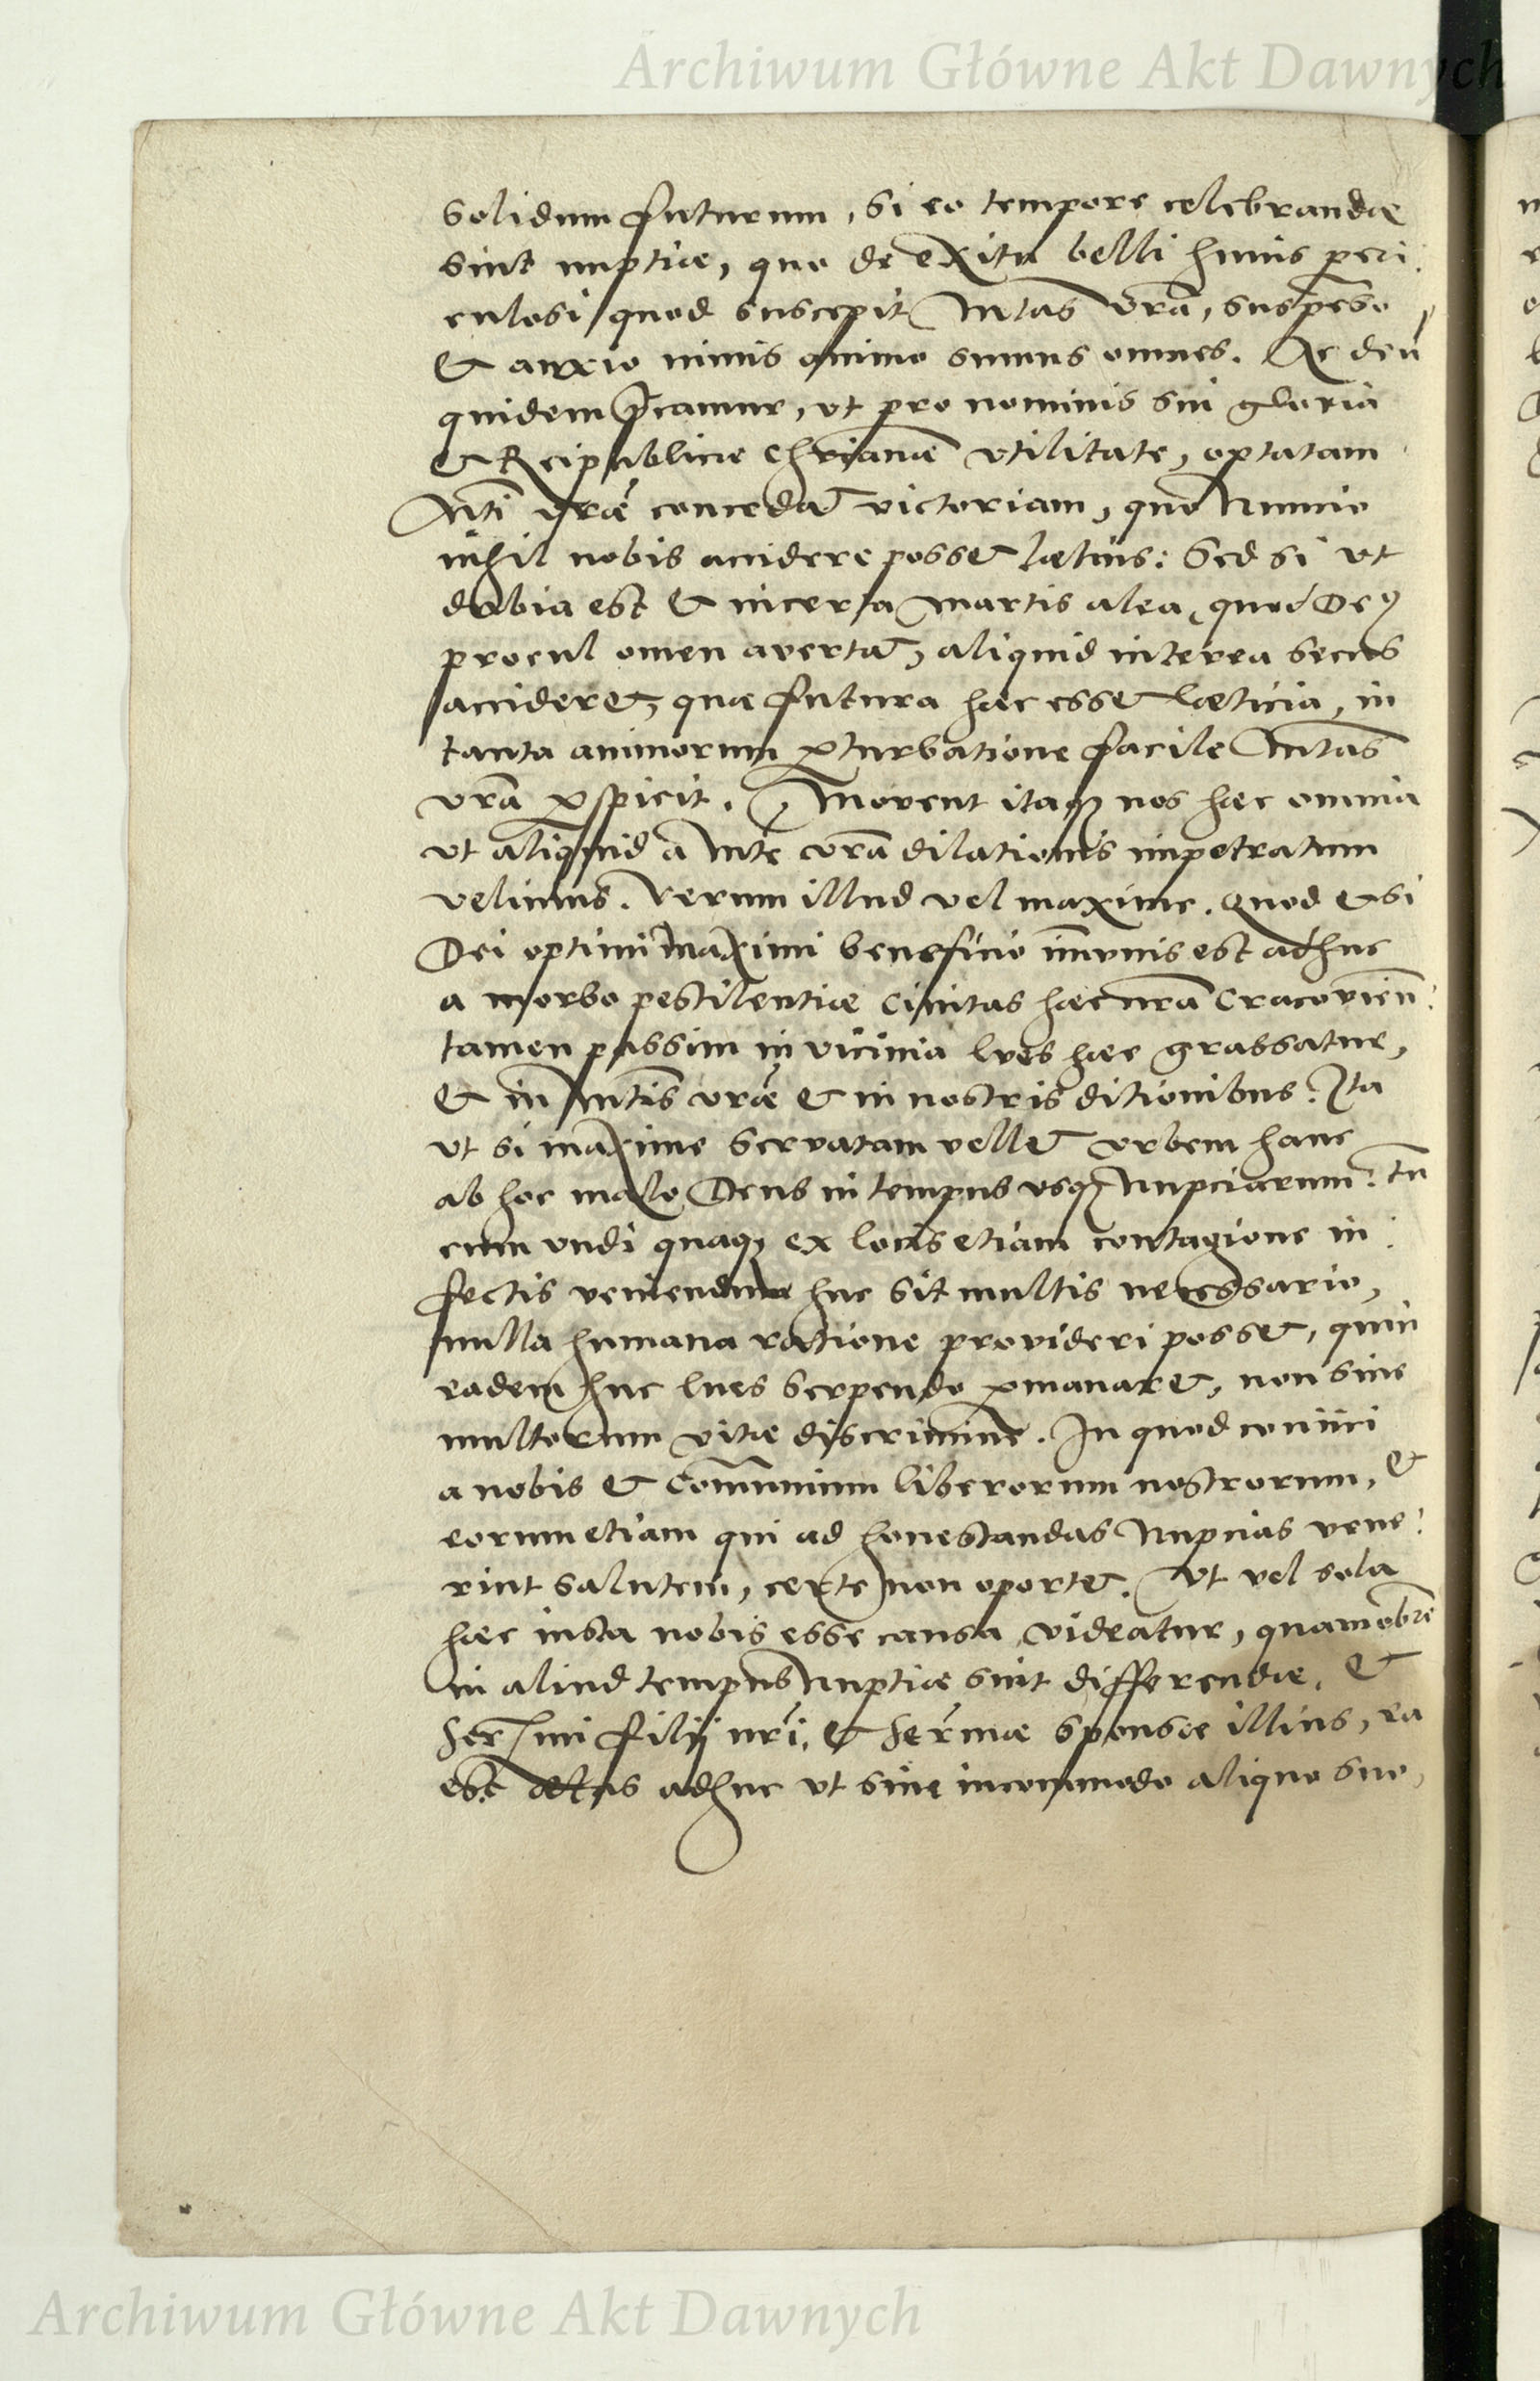 Archiwum Główne Akt Dawnych
solidum futurum, si eo tempore celebrandæ
sint nuptiæ, quo de exitu belli huius peri
culosi quod suscepit Mtas vrã, suspẽso
& anxio nimis animo sumus omnes. Ac deũ
quidem p̃camur, vt pro nominis sui gloria
& Reipublicæ Chrianæ vtilitate, optatam
Mti vræ concedat victoriam, quo nuncio
nihil nobis accidere posset lætius: Sed si vt
dubia est & incerta martis alea, quod Deꝰ
procul omen avertat, aliquid interea secus
accideret, quæ futura hæc esset læticia, in
tanta animorum ꝑturbatione facile Mtas
vrã ꝑspicit. Movent itaqꝫ nos hæc omnia
vt aliquid a Mte vrã dilationis impetratum
velimus. Verum illud vel maxime. Quod etsi
Dei optimi maximi beneficio im̃unis est adhuc
a morbo pestilentiæ civitas hæc nrã Cracovieñ:
tamen passim in vicinia lues hæc grassatur,
& in Mtis vræ & in nostris ditionibus: Ita
vt si maxime servatam vellet vrbem hanc
ab hoc malo Deus in tempus vsqꝫ nupciarum: tñ
cum vndi quaqꝫ ex locis etiam contagione in
fectis veniendum huc sit multis necessario,
nulla humana ratione provideri posset, quin
eadem huc lues serpendo ꝑmanaret, non sine
multorum vitæ discrimine. In quod coniici
a nobis & com̃unium liberorum nostrorum, &
eorum etiam qui ad honestandas nupcias vene:
rint salutem, certe non oportet. Vt vel sola
hæc iusta nobis esse causa videatur, quamobrẽ
in aliud tempus nuptiæ sint differendæ. &
Ser̃mi filij nri, & Ser̃mæ sponsæ illius, ea
est ætas adhuc vt sine incommodo aliquo suo,
Archiwum Główne Akt Dawnych